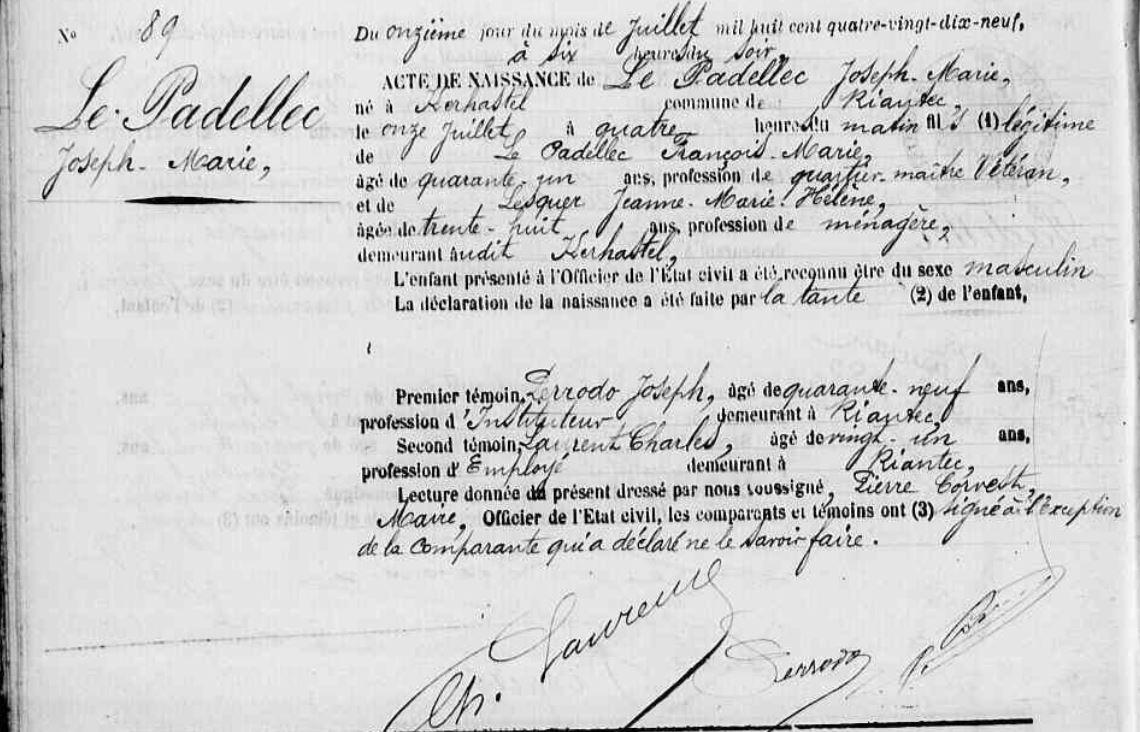 N° 89
Le Padellec
Joseph-Marie,
Du onzième jour du mois de Juillet mil huit cent quatre-vingt-dix-neuf,
à six heures du soir,
ACTE DE NAISSANCE de Le Padellec Joseph-Marie,
né à Kerhastel commune de Riantec,
le onze Juillet à quatre heures du matin fils (1) légitime
de Le Padellec François-Marie,
âgé de quarante-un ans, profession de quartier-maître Vétéran,
et de Lesquer Jeanne-Marie-Hélène,
âgée de trente-huit ans, profession de ménagère,
demeurant audit Kerhastel,
L'enfant présenté à l'Officier de l'Etat civil a été reconnu être du sexe masculin
La déclaration de la naissance a été faite par la tante (2) de l'enfant,
Premier témoin, Perrodo Joseph, âgé de quarante-neuf ans,
profession d'Instituteur, demeurant à Riantec,
Second témoin, Laurent Charles, âgé de vingt-un ans,
profession d'Employé demeurant à Riantec,
Lecture donnée du présent dressé par nous soussigné, Pierre Corvest,
Maire, Officier de l'Etat civil, les comparants et témoins ont (3) signé à l'exception
de la comparante qui a déclaré ne le savoir faire.
Laurent
Ch.
Perrodo